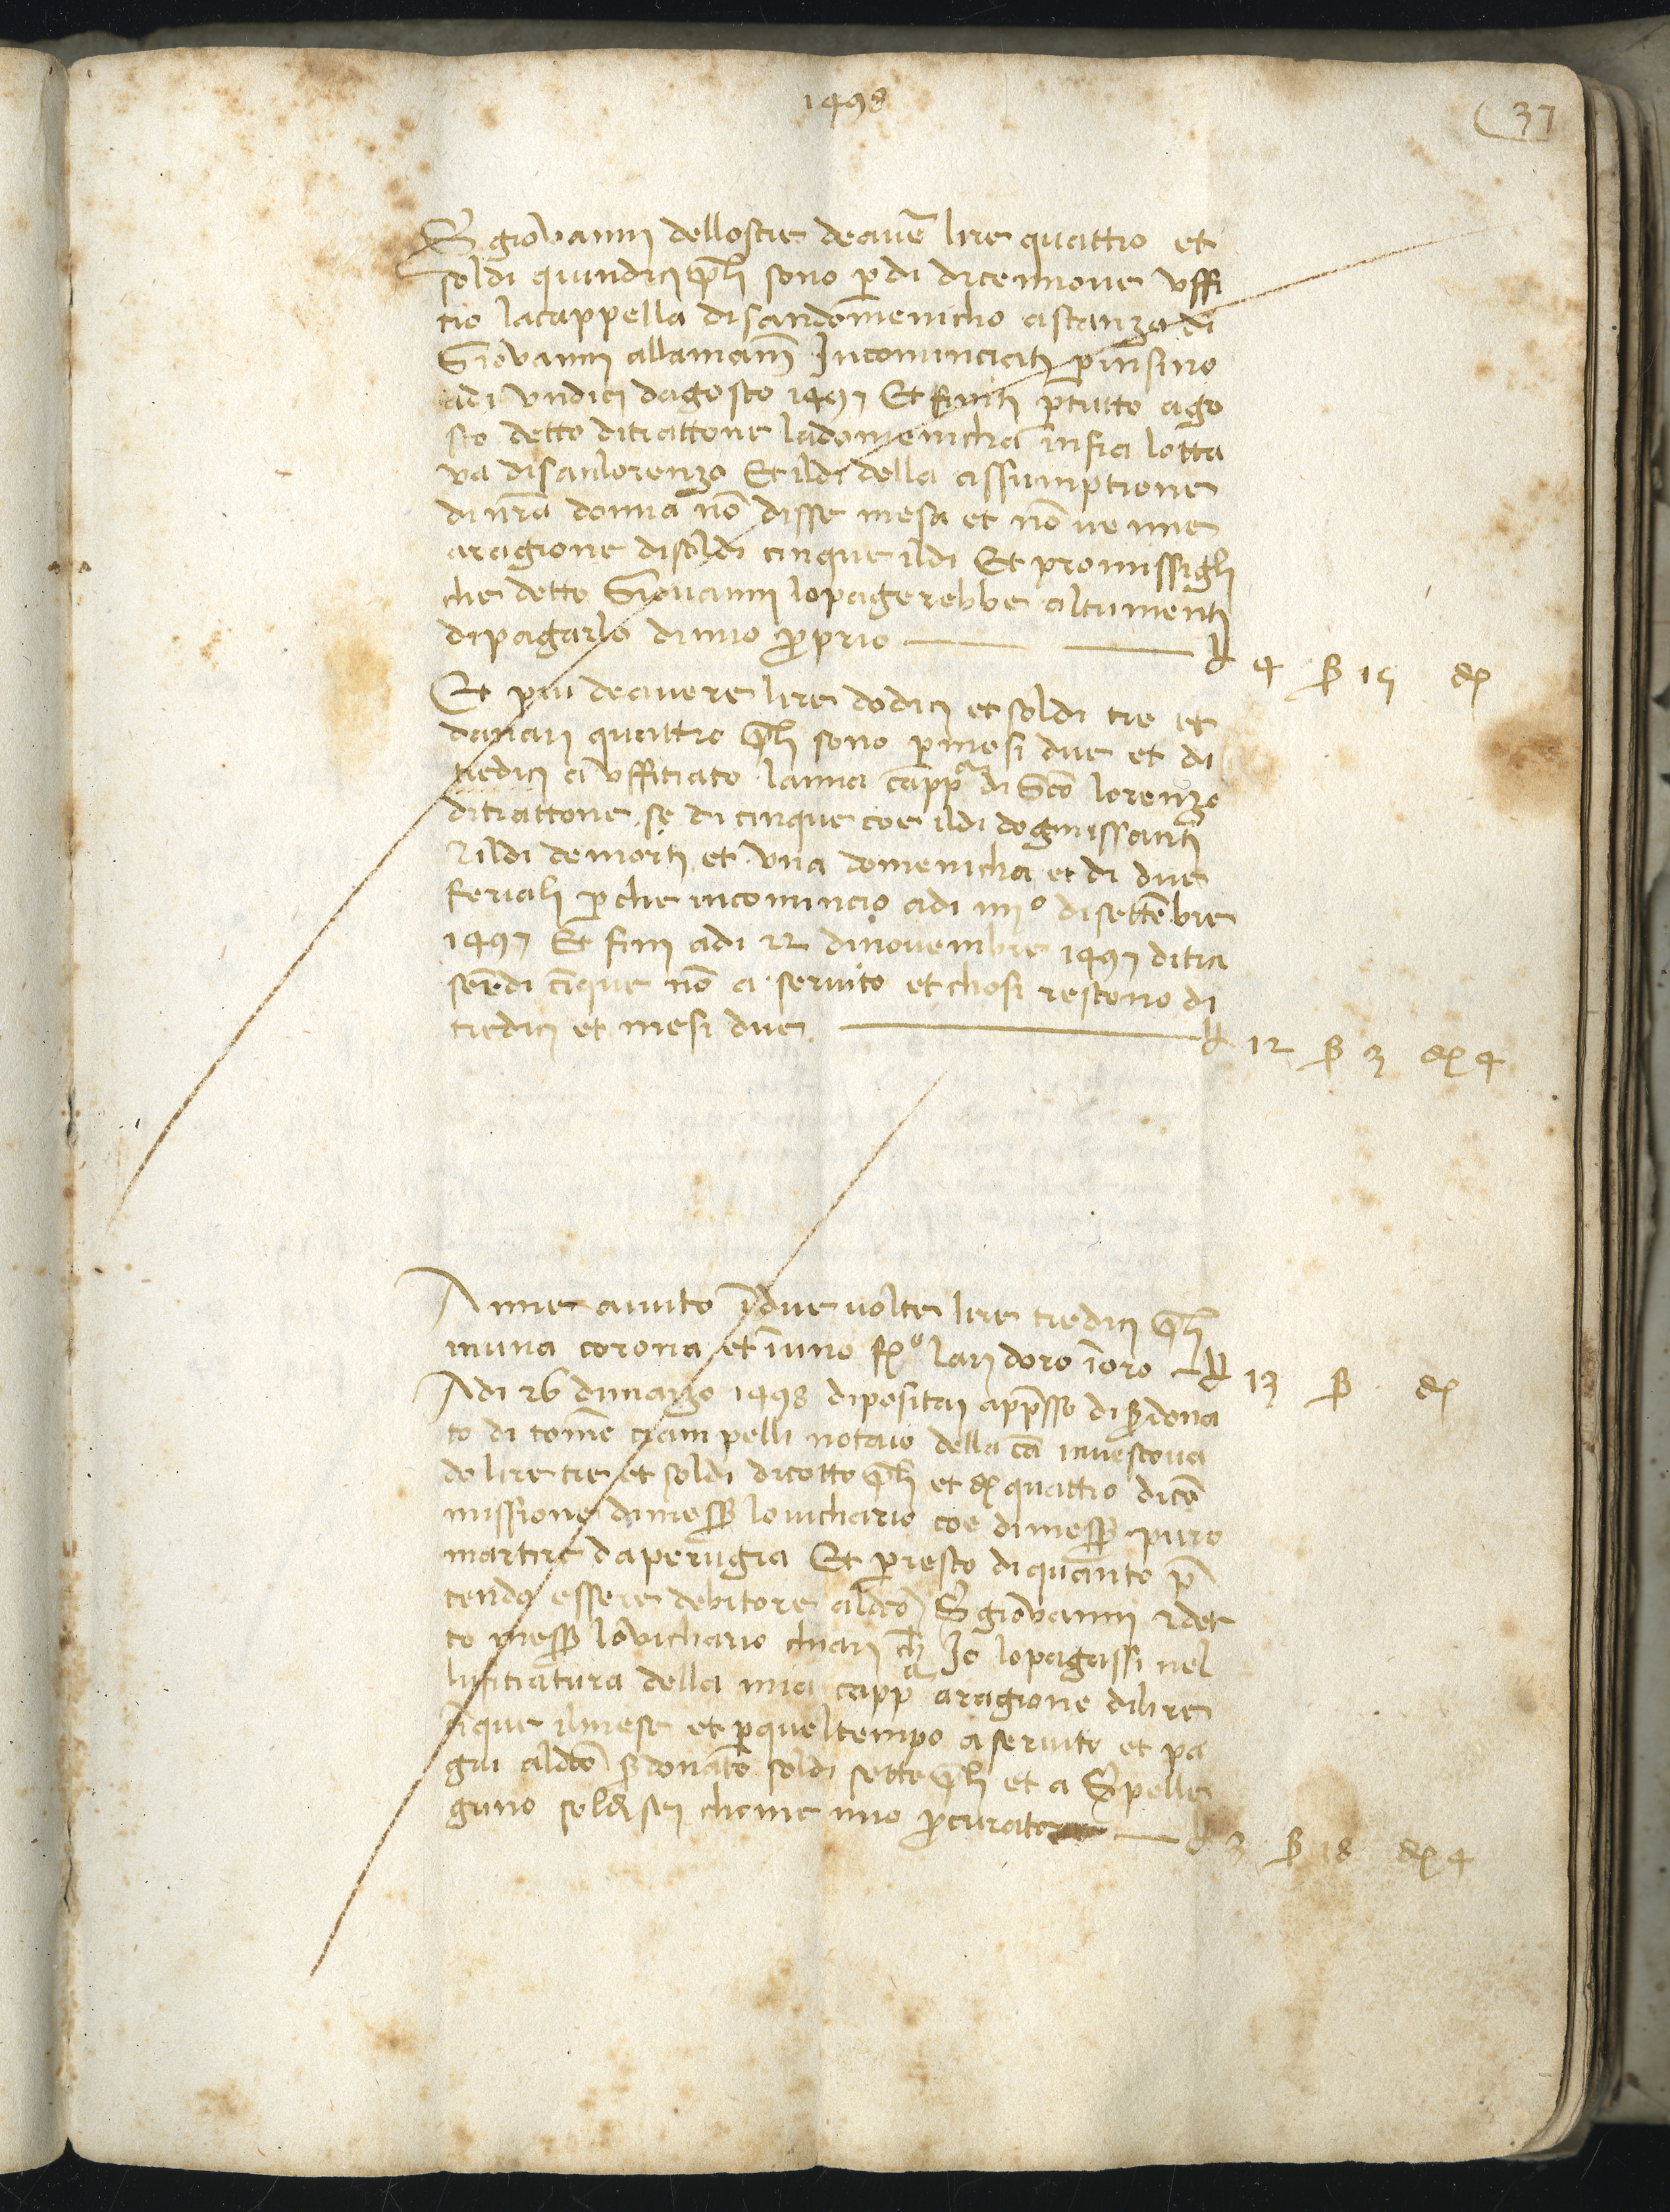 1498
37
S giovanni dellostie de avē lire quattro et
soldi quindici qli sono p di dicennove uffi
tio la cappella di san domenicho a stanza di
Giovanni allamanī Incominciati p insino
adi undici dagosto 1497 Et finiti p tutto ago
sto detto ditrattone la domenicha infra lotta
va di sanlorenzo Et il di della assumptione
di nrā donna nō disse mesa et nō venne
aragione di soldi cinque il di Et promissigli
che detto Giovanni lo pagerebbe altrimenti
di pagarlo di mio pprio — — ł 4 ß 15 δ
Et piu de avere lire dodici et soldi tre et
danari quattro qli sono p mesi due et di
tredici a uffitiato la mia capp di Scō lorenzo
ditrattone se di cinque coe il di dognissanti
2 il di de morti et una domenicha et di due
feriali p che incomincio adi iiijo di settēbre
1497 Et fini adi 22 di novembre 1497 ditra
sendi cīque nō a servito et chosi restono di
tredici et mesi due — ł 12 ß 3 δ 4
Anne avuto ī due volte lire tredici qli
inuna corona et ī uno fo lari doro ī oro — ł 13 ß δ
Adi 26 di marzo 1498 dipositai appsso di s dona
to di tomē ciampelli notaio della cā in vescova
do lire tre et soldi dicotto qli et δ quattro di cō
missione di mess lo vichario coe di mess piero
martire da perugia Et p resto di quanto p
tendo essere debitore al dcō S giovanni 2 det
to mess lo vichario chiari ch Io lo pagassi nel
lufitiatura della mia capp a ragione di lire
cīque il mese et p quel tempo a servito et pa
gai al dcō s donato soldi sette qli et a S pelle
grino soldi sei chome mio pcuratore — ł 3 ß 18 δ 4